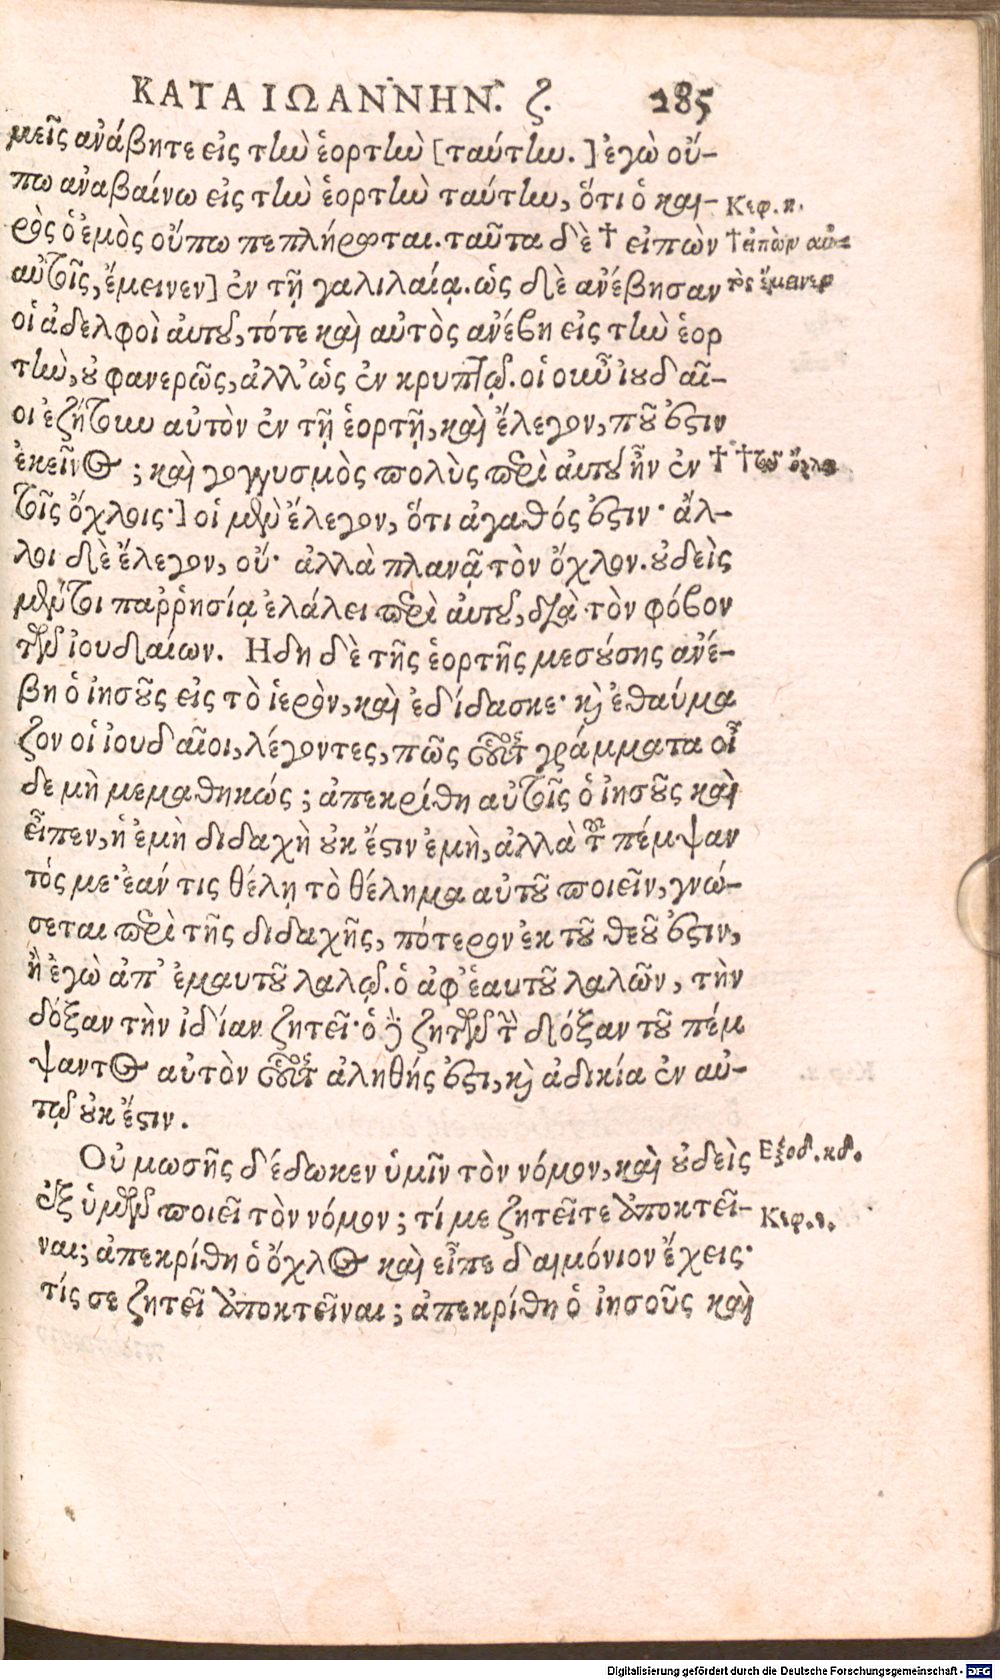 ΚΑΤΑ ΙΩΑΝΝΗΝ. ζ. 285
μεῖς ἀνάβητε εἰς τὴν ἑορτὴν [ταύτην.] ἐγὼ οὔ-
πω ἀναβαίνω εἰς τὴν ἑορτὴν ταύτην, ὅτι ὁ και-
ρὸς ὁ ἐμὸς οὔπω πεπλήρωται. ταῦτα δὲ † εἰπὼν
αὐτοῖς, ἔμεινεν] ἐν τῇ γαλιλαίᾳ. ὡς δὲ ἀνέβησαν
οἱ ἀδελφοὶ αὐτοῦ, τότε καὶ αὐτὸς ἀνέβη εἰς τὴν ἑορ
τὴν, οὐ φανερῶς, ἀλλ' ὡς ἐν κρυπτῷ. οἱ οὖν ἰουδαῖ-
οι ἐζήτουν αὐτὸν ἐν τῇ ἑορτῇ, καὶ ἔλεγον, ποῦ ἐστιν
ἐκεῖνος; καὶ γογγυσμὸς πολὺς περὶ αὐτοῦ ἦν ἐν †
τοῖς ὄχλοις·] οἱ μὲν ἔλεγον, ὅτι ἀγαθός ἐστιν· ἄλ-
λοι δὲ ἔλεγον, οὔ· ἀλλὰ πλανᾷ τὸν ὄχλον. οὐδεὶς
μέντοι παῤῥησίᾳ ἐλάλει περὶ αὐτοῦ, διὰ τὸν φόβον
τῶν ἰουδαίων. Ηδη δὲ τῆς ἑορτῆς μεσούσης ἀνέ-
βη ὁ ἰησοῦς εἰς τὸ ἱερὸν, καὶ ἐδίδασκε· καὶ ἐθαύμα
ζον οἱ ἰουδαῖοι, λέγοντες, πῶς οὗτος γράμματα οἶ
δε μὴ μεμαθηκώς; ἀπεκρίθη αὐτοῖς ὁ ἰησοῦς καὶ
εἶπεν, ἡ ἐμὴ διδαχὴ οὐκ ἔστιν ἐμὴ, ἀλλὰ τοῦ πέμψαν
τός με· ἐάν τις θέλῃ τὸ θέλημα αὐτοῦ ποιεῖν, γνώ-
σεται περὶ τῆς διδαχῆς, πότερον ἐκ τοῦ θεοῦ ἐστιν,
ἢ ἐγὼ ἀπ' ἐμαυτοῦ λαλῶ. ὁ ἀφ' ἑαυτοῦ λαλῶν, τὴν
δόξαν τὴν ἰδίαν ζητεῖ· ὁ δὲ ζητῶν τὴν δόξαν τοῦ πέμ
ψαντος αὐτὸν οὗτος ἀληθής ἐστι, καὶ ἀδικία ἐν αὐ-
τῷ οὐκ ἔστιν.
Οὐ μωσῆς δέδωκεν ὑμῖν τὸν νόμον, καὶ οὐδεὶς
ἐξ ὑμῶν ποιεῖ τὸν νόμον; τί με ζητεῖτε ἀποκτεῖ-
ναι; ἀπεκρίθη ὁ ὄχλος καὶ εἶπε δαιμόνιον ἔχεις·
τίς σε ζητεῖ ἀποκτεῖναι; ἀπεκρίθη ὁ ἰησοῦς καὶ
Κεφ. η.
† εἰπὼν αὐ-
τὸς ἔμεινεν
† τῷ ὄχλῳ
Εξοδ. κδ.
Κεφ. ε.
Digitalisierung gefördert durch die Deutsche Forschungsgemeinschaft - DFG